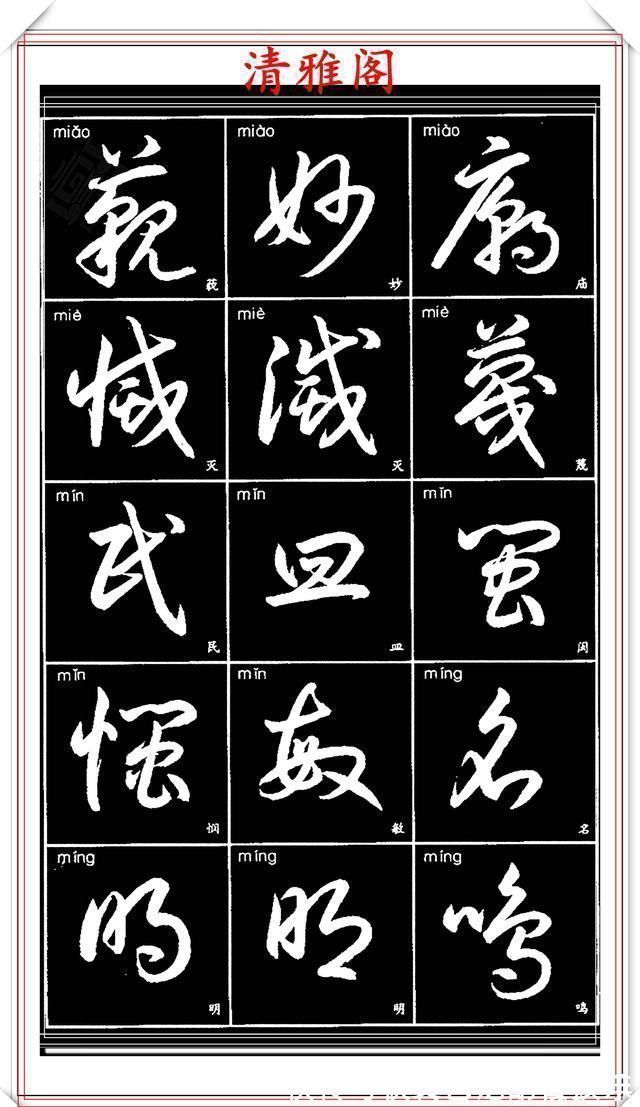 清雅阁
miǎo miào miào
藐 妙 廟
藐 妙 庙
miè miè miè
滅 蔑
灭 灭 蔑
mín mǐn mǐn
民 皿 閩
民 皿 闽
mǐn mǐn míng
憫 敏 名
悯 敏 名
míng míng míng
明 明 鳴
明 明 鸣